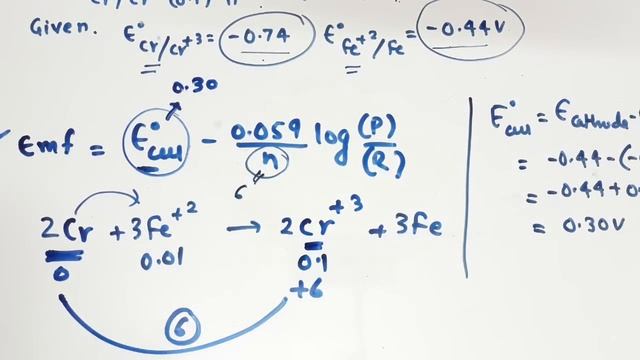 Given. E°Cr/Cr+3 = -0.74 E°Fe+2/Fe = -0.44V
0.30
Emf = E°cell - 0.059/n log (P)/(R)
6
2Cr + 3Fe+2 → 2Cr+3 + 3Fe
0 0.01 0.1
+6
6
E°cell = Ecathode -
= -0.44 - (-
= -0.44 + 0
= 0.30V